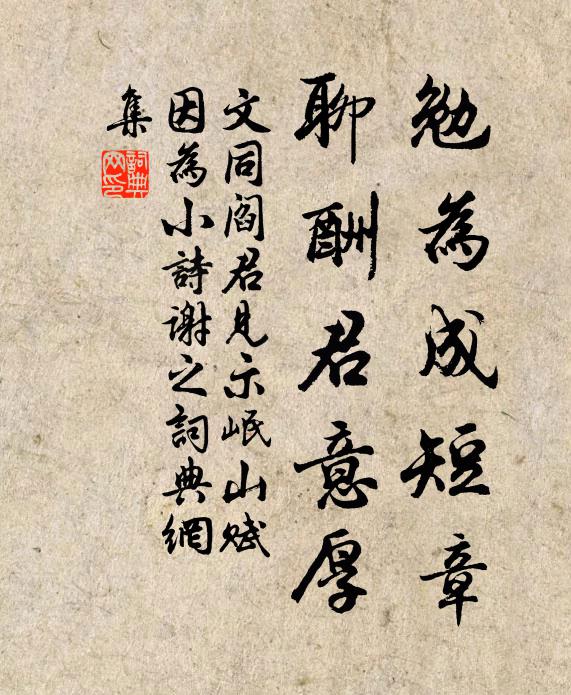 勉為成短章
聊酬君意厚
文同閻君見示岷山賦
因為小詩谢之詞典網
集
詞典
网印